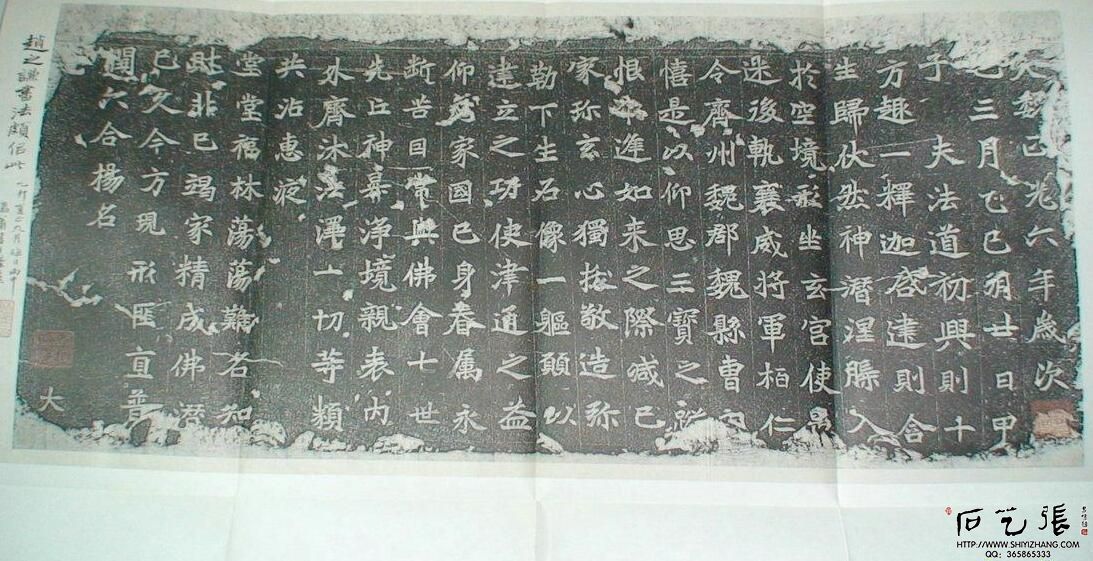 大魏正光六年歲次
乙巳三月乙巳朔廿日甲
子夫法道初興則十
方趣一釋迦啓建則含
生歸伏然神潛涅槃入
於空境形坐玄宮使愚
迷後軌襄威將軍柏仁
令齊州魏郡魏縣曹
憘是以仰思三寶之蹤
恨未逢如來之際減己
家珎玄心獨拔敬造弥
勒下生石像一軀願以
建立之功使津通之益
仰為家國己身眷属永
斷苦因常與佛會七世
先亡神安淨境親表內
外齊沐法澤一切等類
共沾惠液
堂堂福林蕩蕩難名知
財非己竭家精成佛潛
已久今方現形匪直普
潤六合揚名
大
趙之謙書法頗似此
張艺石
HTTP://WWW.SHIYIZHANG.COM
QQ: 365865333